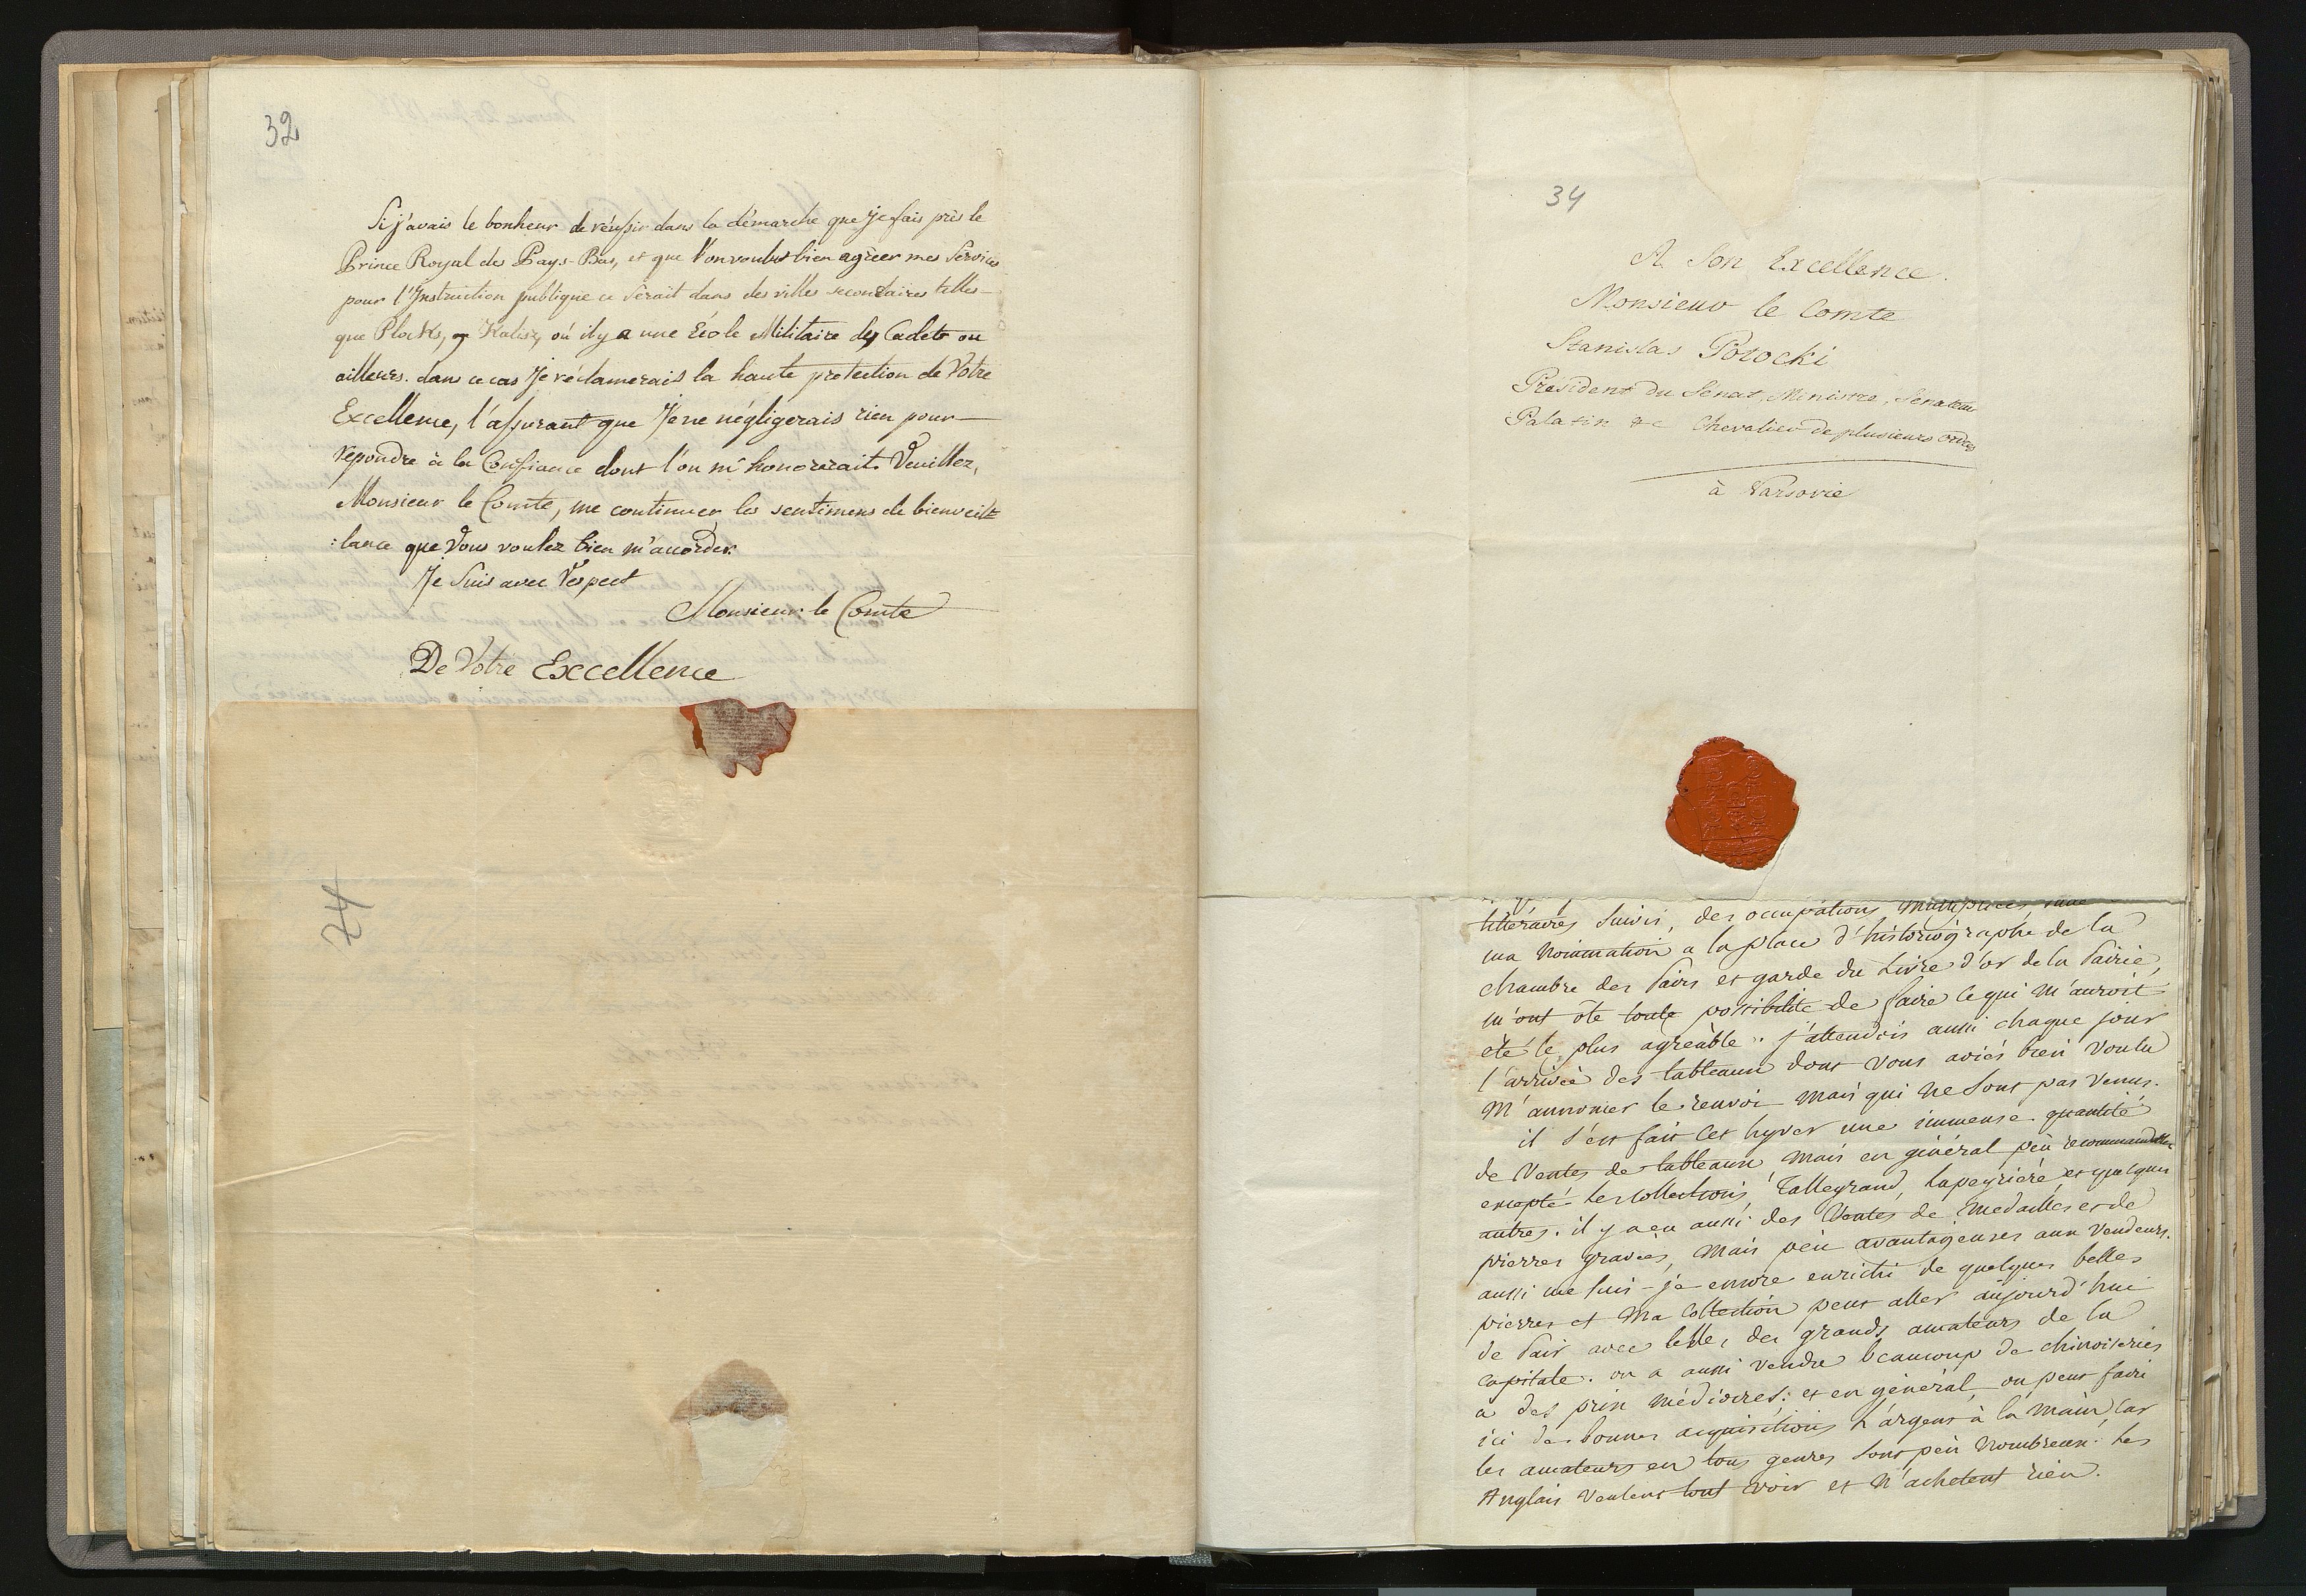 32
Si j'avais le bonheur de réussir dans la démarche que Je fais près le
Prince Royal des Pays-Bas, et que l'on voulut bien agréer mes Services
pour l'Instruction publique ce Serait dans des villes secondaires telles
que Plock, Kalisz, où il y a une École Militaire des Cadets ou
ailleurs. dans ce cas Je réclamerais la haute protection de Votre
Excellence, l'assurant que Je ne négligerais rien pour
répondre à la Confiance dont l'on m'honorerait. Veuillez,
Monsieur le Comte, me continuer les sentimens de bienveil=
:lance que Vous voulez bien m'accorder.
Je Suis avec Respect
Monsieur le Comte
De Votre Excellence
74
34
A Son Excellence.
Monsieur le Comte
Stanislas Potocki
Président du Sénat, Ministre, Senateur
Palatin &c Chevalier de plusieurs ordres
à Varsovie
littéraires Suivis, des occupations multipliées,
ma nomination a la place d'historiographe de la
chambre des Pairs et garde du Livre d'or de la Pairie,
m'ont ôté toute possibilité de faire ce qui m'auroit
été le plus agréable. j'attendois aussi chaque jour
l'arrivée des tableaux dont vous aviés bien voulu
M'annoncer le renvoi mais qui ne Sont pas venus.
il s'est fait cet hyver une immense quantité
de Ventes de tableaux, mais en général peu recommandables
excepté les collections, Talleyrand, Lapeyriere et quelques
autres. il y a eu aussi des Ventes de Medailles et de
pierres gravées, mais peu avantageuses aux Vendeurs.
aussi me suis-je encore enrichi de quelques belles
pierres et Ma Collection peut aller aujourd'hui
de Pair avec celles des grands amateurs de la
capitale. on a aussi vendu beaucoup de chinoiseries
a des prix médiocres; et en général, on peut faire
ici de bonnes acquisitions l'argent à la main, car
les amateurs en tous genres Sont peu nombreux. Les
Anglais Veulent tout voir et N'achetent rien.